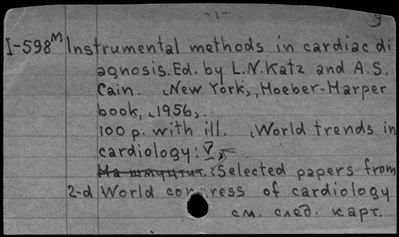 - 1 -
I-598ᴹ Instrumental methods in cardiac di
agnosis. Ed. by L.N. Katz and A.S.
Cain. New York, Hoeber-Harper
book, 1956.
100 p. with ill. World trends in
cardiology: V,
На шмуцтит.: Selected papers from
2-d World congress of cardiology
см. след. карт.